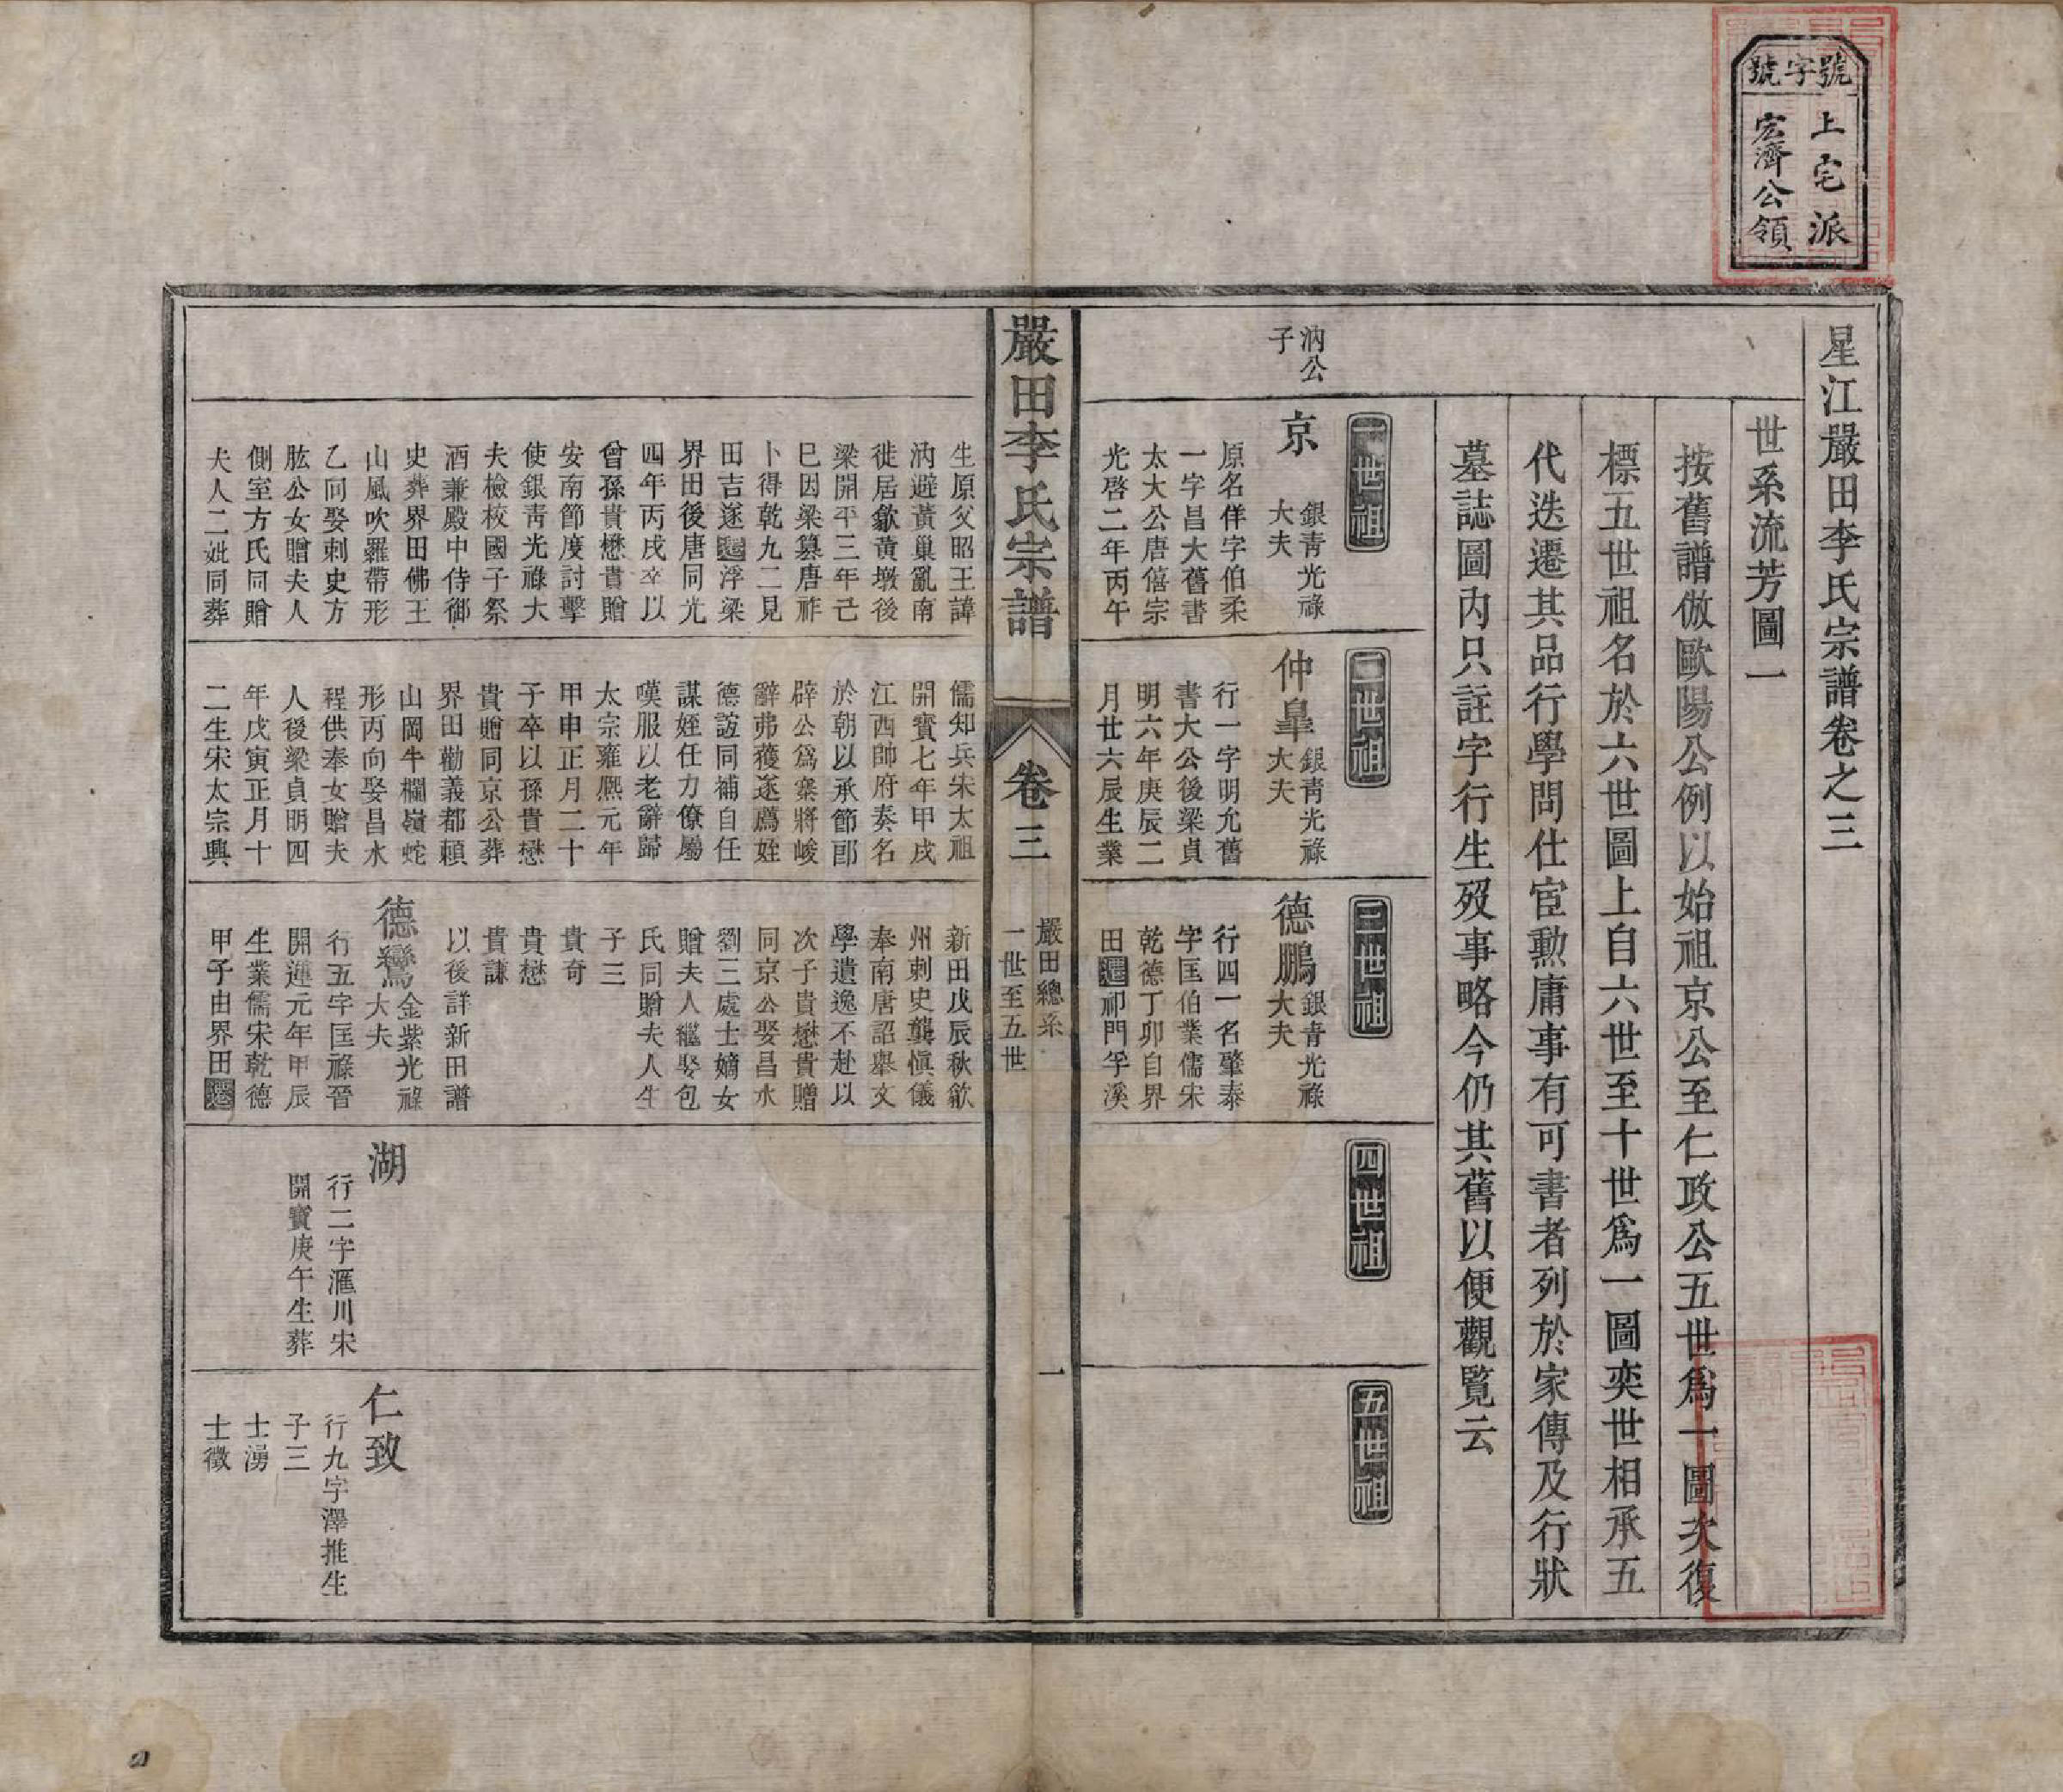 號字號
上宅派
宏濟公領
星江嚴田李氏宗譜卷之三
世系流芳圖一
按舊譜倣歐陽公例以始祖京公至仁政公五世爲一圖次復
標五世祖名於六世圖上自六世至十世爲一圖奕世相承五
代迭遷其品行學問仕宦勲庸事有可書者列於家傳及行狀
墓誌圖內只註字行生歿事略今仍其舊以便觀覽云
汭公
子
一世祖
京
銀青光祿
大夫
原名佯字伯柔
一字昌大舊書
太大公唐僖宗
光啓二年丙午
生原父昭王諱
汭避黃巢亂南
徙居歙黃墩後
梁開平三年己
巳因梁篡唐祚
卜得乾九二見
田吉遂遷浮梁
界田後唐同光
四年丙戌卒以
曾孫貴懋貴贈
安南節度討擊
使銀靑光祿大
夫檢校國子祭
酒兼殿中侍御
史葬界田佛王
山風吹羅帶形
乙向娶刺史方
肱公女贈夫人
側室方氏同贈
夫人二妣同葬
二世祖
仲臯
銀靑光祿
大夫
行一字明允舊
書大公後梁貞
明六年庚辰二
月廿六辰生業
儒知兵宋太祖
開寶七年甲戌
江西帥府奏名
於朝以承節郎
辟公爲寨將峻
辭弗獲遂薦姪
德誼同補自任
謀姪任力僚屬
嘆服以老辭歸
太宗雍熈元年
甲申正月二十
子卒以孫貴懋
貴贈同京公葬
界田勸義都賴
山岡牛欄嶺蛇
形丙向娶昌水
程供奉女贈夫
人後梁貞明四
年戊寅正月十
二生宋太宗興
三世祖
德鵬
銀青光祿
大夫
行四一名肇泰
字匡伯業儒宋
乾德丁卯自界
田遷祁門孚溪
新田戊辰秋歙
州刺史龔愼儀
奉南唐詔舉文
學遺逸不赴以
次子貴懋貴贈
同京公娶昌水
劉三處士嫡女
贈夫人繼娶包
氏同贈夫人生
子三
貴奇
貴懋
貴謙
以後詳新田譜
德鸞
金紫光祿
大夫
行五字匡祿晉
開運元年甲辰
生業儒宋乾德
甲子由界田遷
四世祖
湖
行二字滙川宋
開寶庚午生葬
五世祖
仁致
行九字澤推生
子三
士湧
士徵
嚴田李氏宗譜
卷三
嚴田總系
一世至五世
一